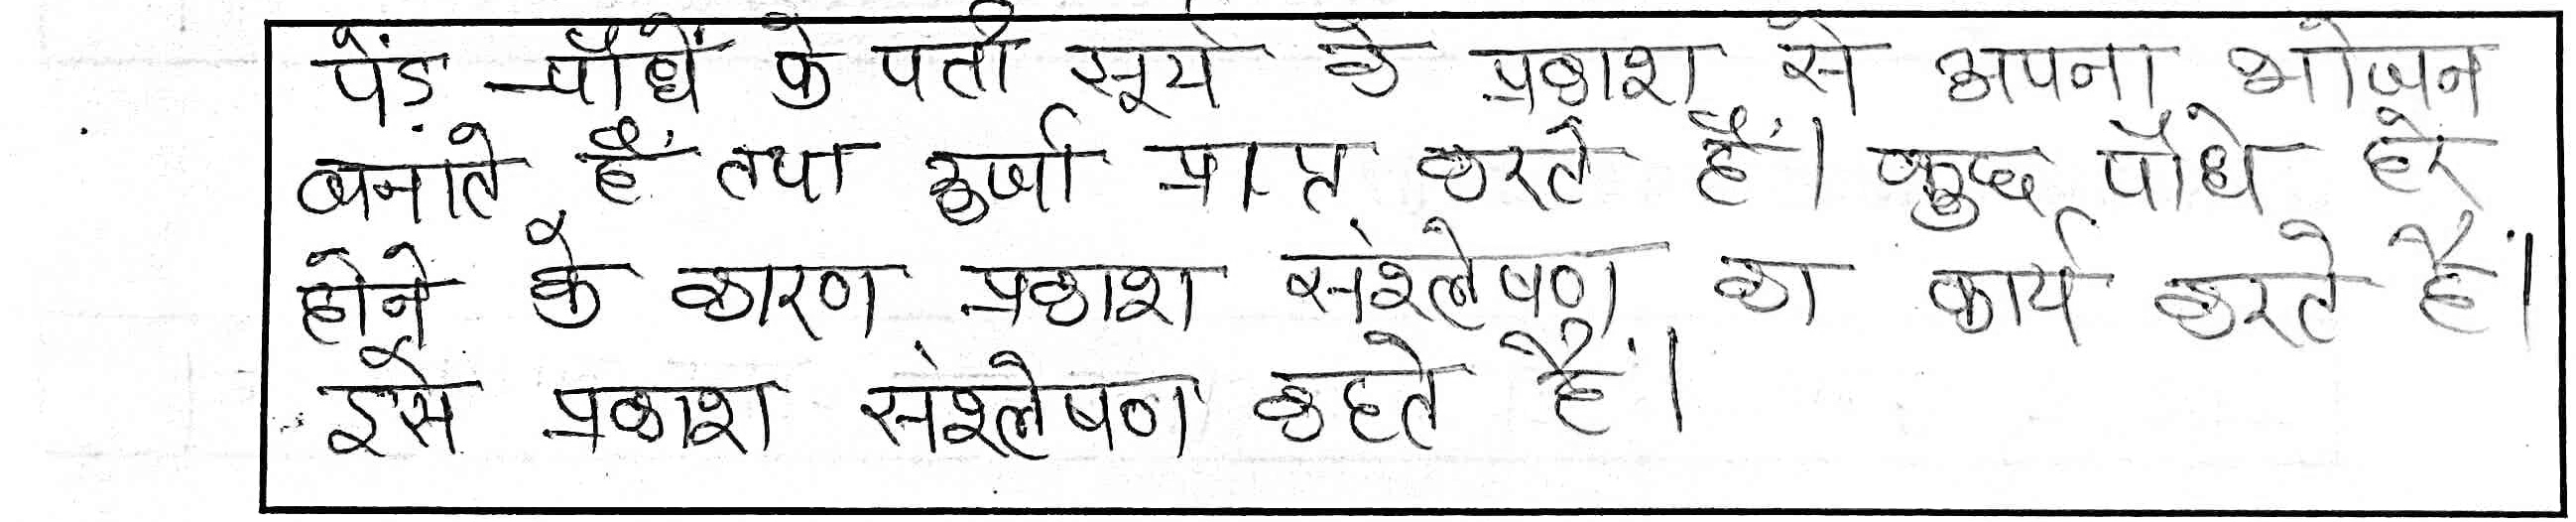 पेंड़ -पौधें के पती सूर्य के प्रकाश से अपना भोजन
बनाते हैं, तथा ऊर्जा प्राप्त करते हैं। कुछ पौधे हरे
होने के कारण प्रकाश संश्लेषण का कार्य करते हैं।
इसे प्रकाश संश्लेषण कहते हैं।